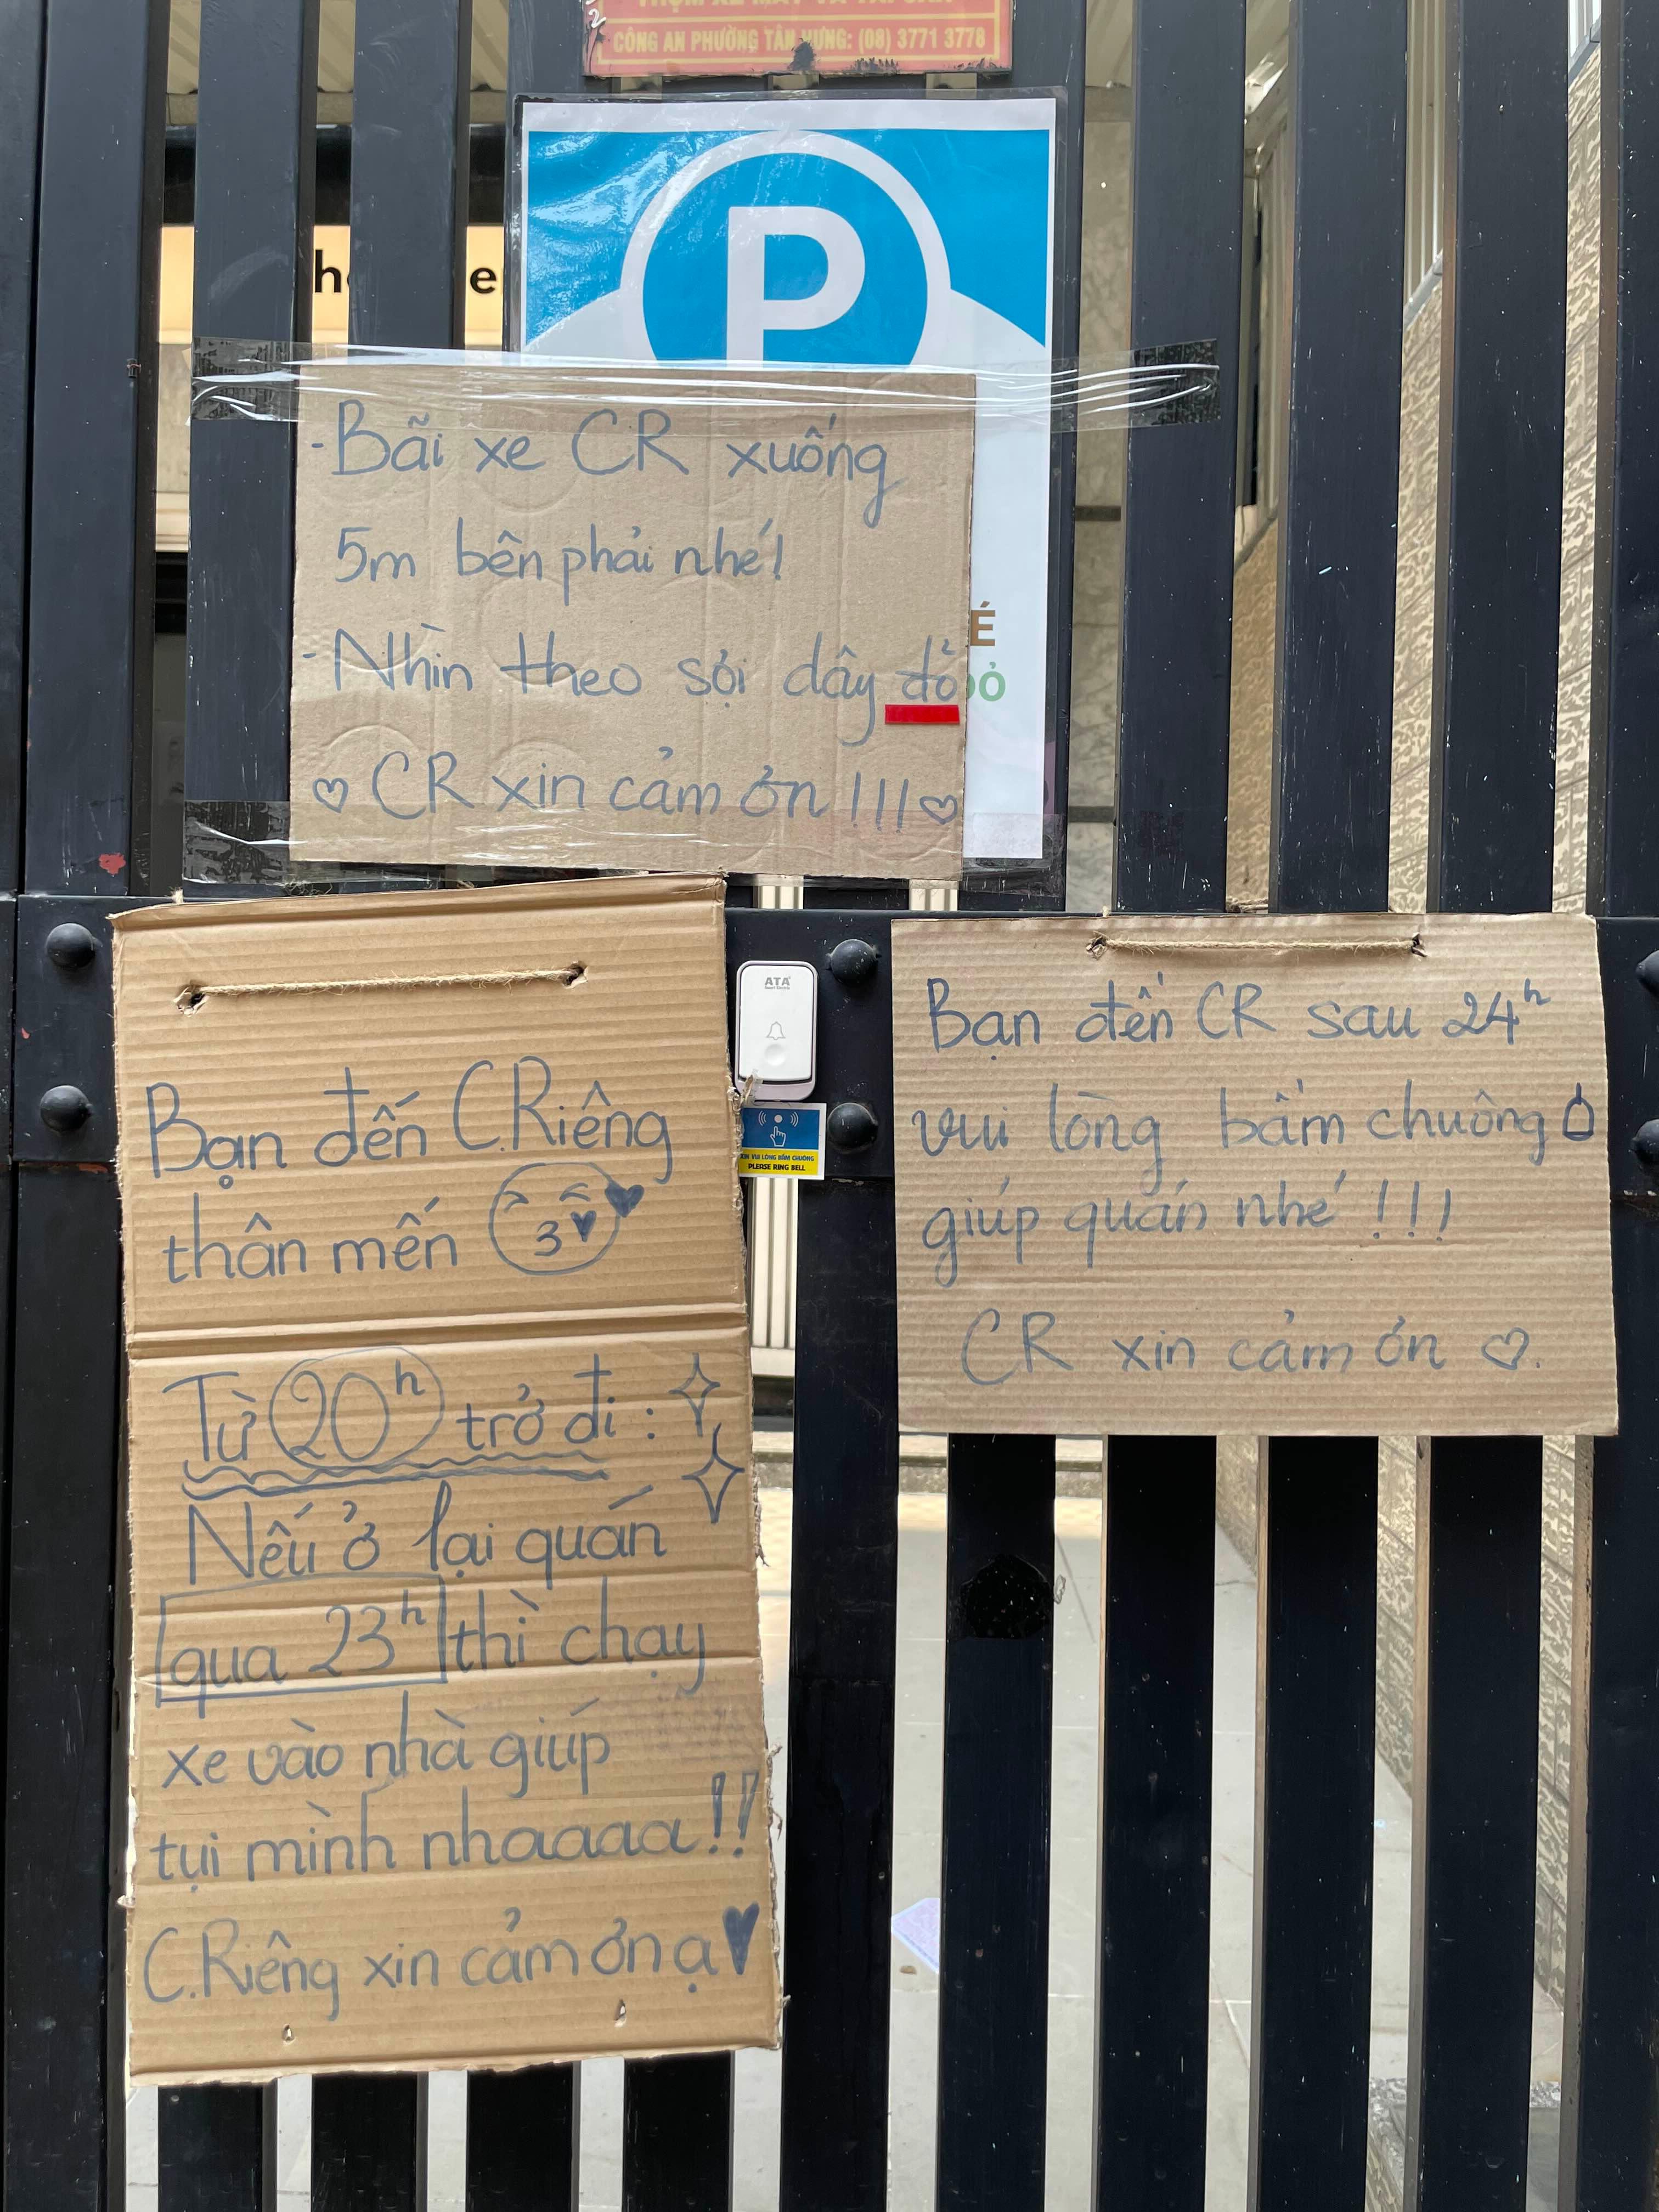 CÔNG AN PHƯỜNG TÂN HƯNG: (08) 3771 3778
P
- Bãi xe CR xuống
5m bên phải nhé!
- Nhìn theo sợi dây đỏ
♡ CR xin cảm ơn !!! ♡
ATA
Bạn đến C.Riêng
thân mến
Từ 20h trở đi :
Nếu ở lại quán
qua 23h thì chạy
xe vào nhà giúp
tụi mình nhaaaaa!!
C.Riêng xin cảm ơn ạ ♥
XIN VUI LÒNG BẤM CHUÔNG
PLEASE RING BELL
Bạn đến CR sau 24h
vui lòng bấm chuông
giúp quán nhé !!!
CR xin cảm ơn ♡.